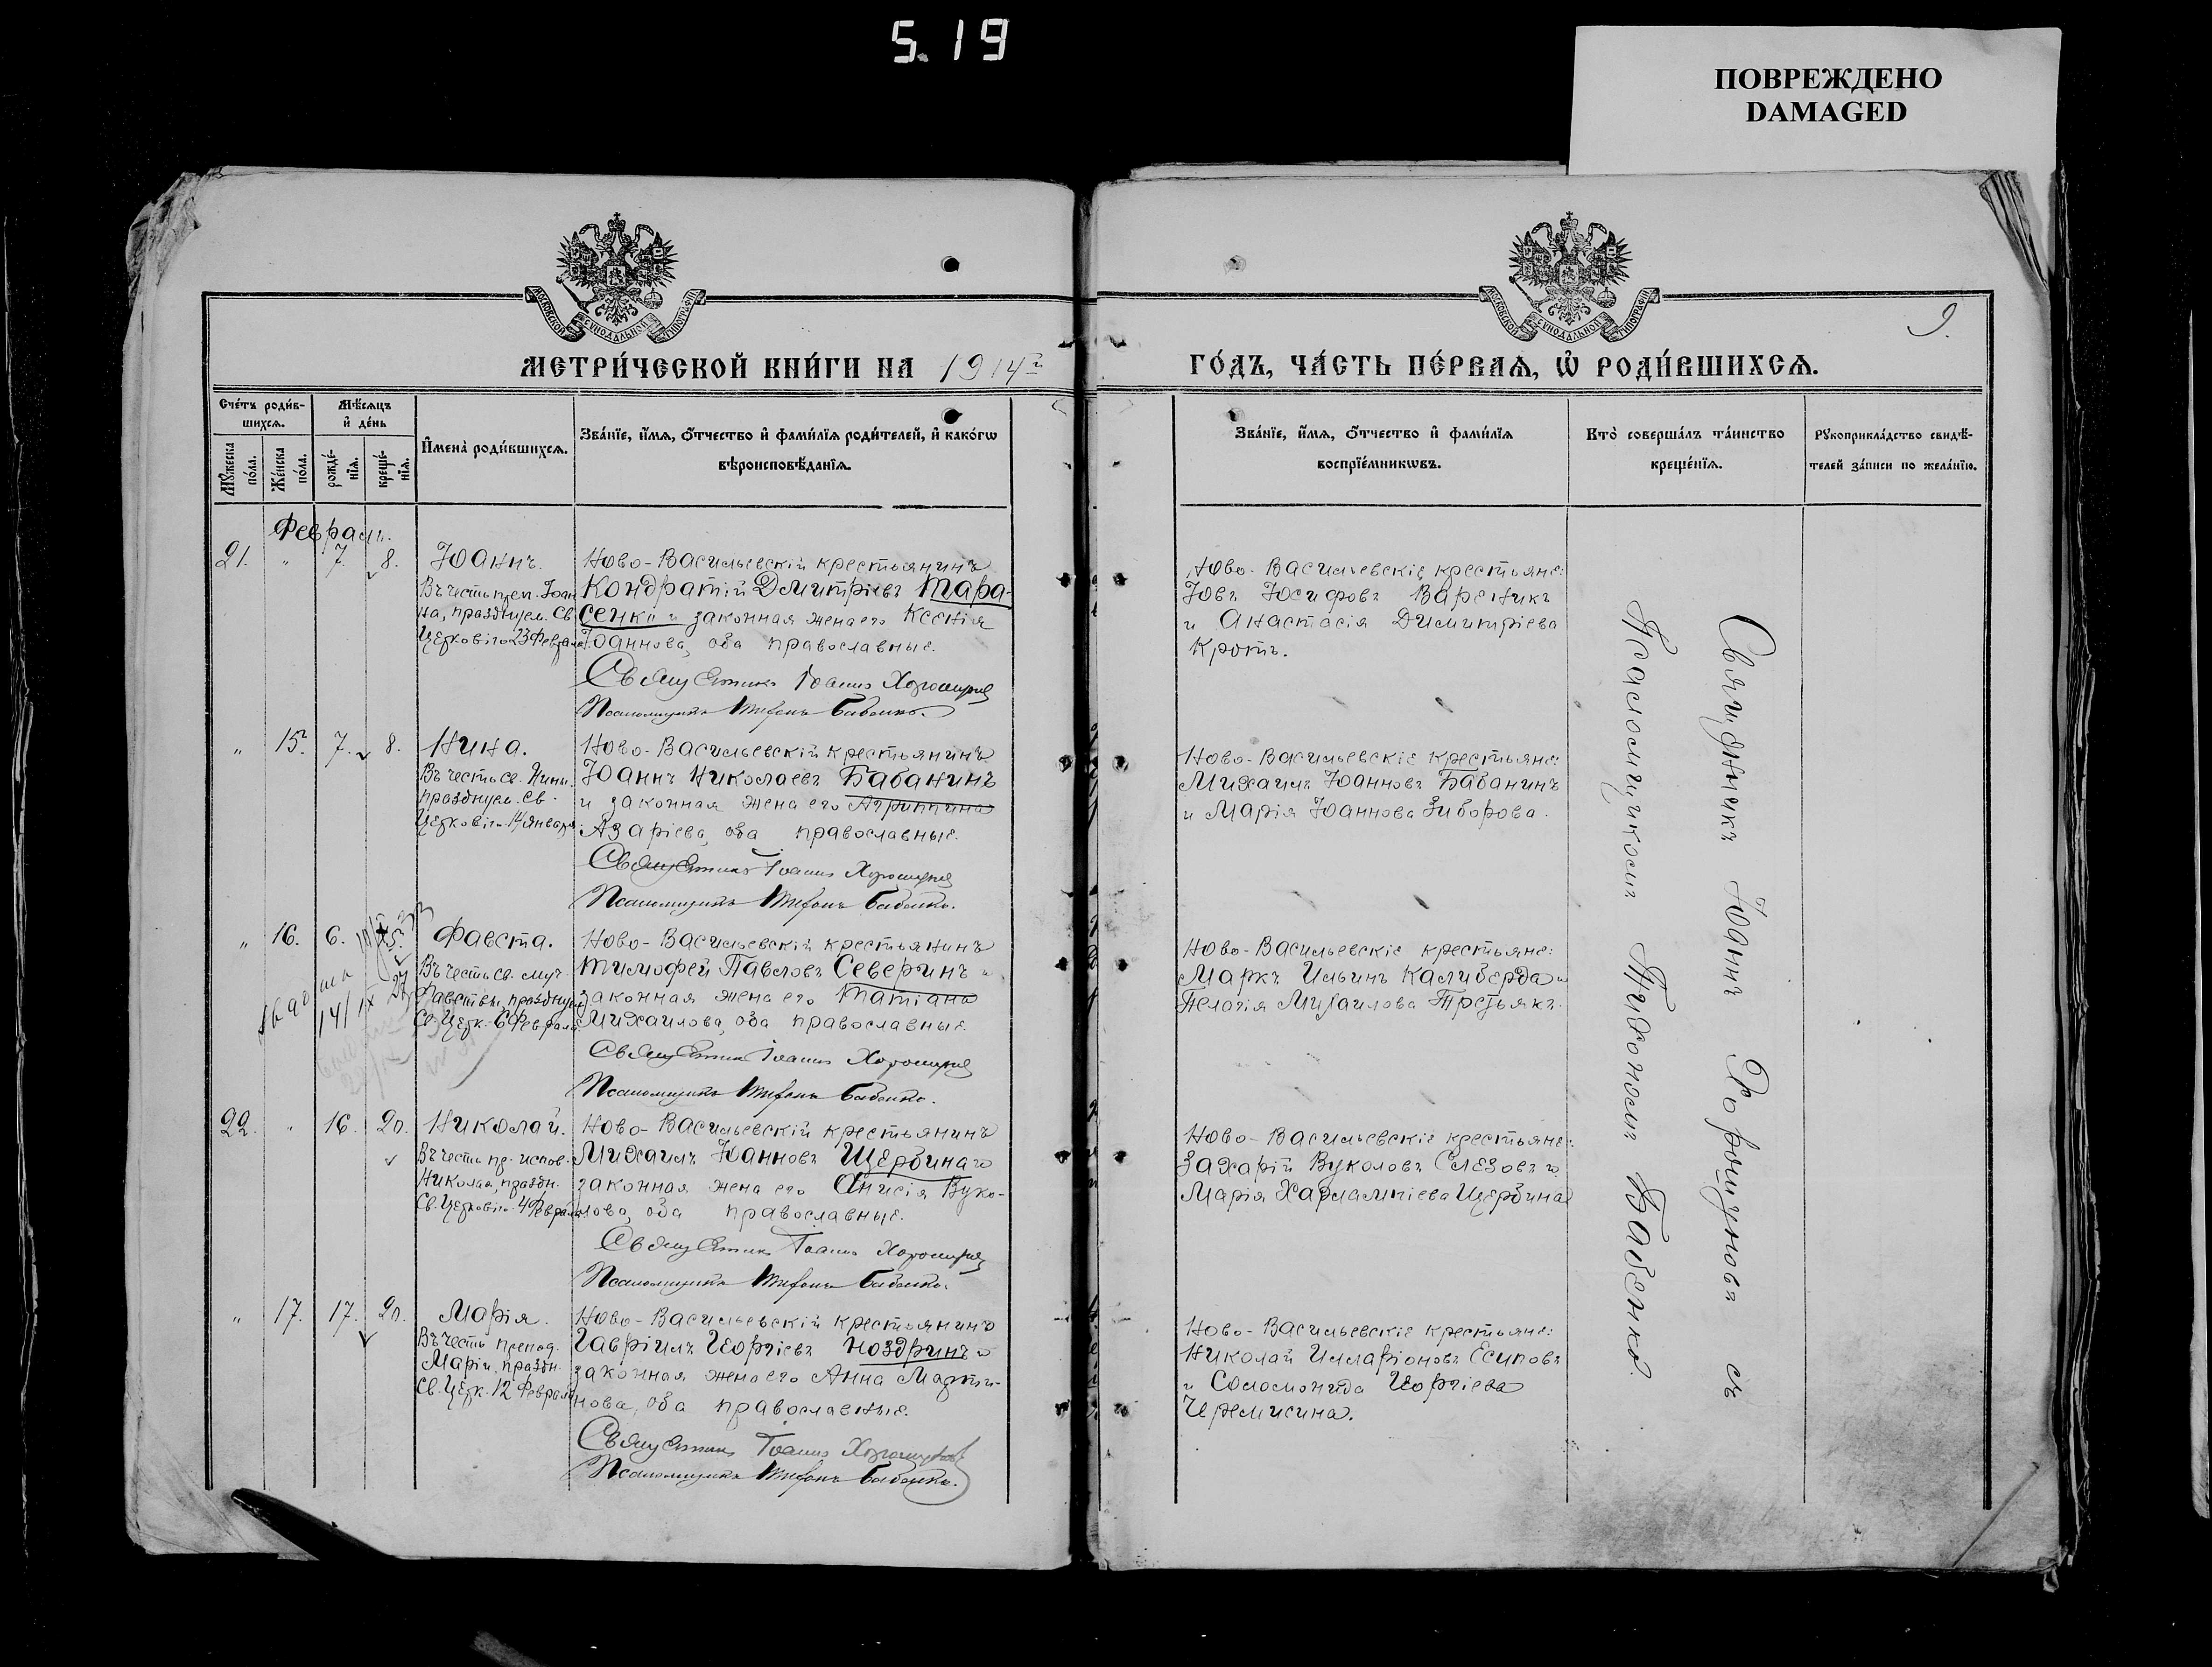 5.19
ПОВРЕЖДЕНО
DAMAGED
МОСКОВСКОЙ СѴНОДАЛЬНОЙ ТИПОГРАФІИ
МОСКОВСКОЙ СѴНОДАЛЬНОЙ ТИПОГРАФІИ
9.
МЕТРИ́ЧЕСКОЙ КНИ́ГИ НА 1914 г.
ГО́ДЪ, ЧА́СТЬ ПЕ́РВАѦ, Ѡ҆ РОДИ́ВШИХСѦ.
Сче́тъ роди́в-
шихсѧ.
Мѣ́сѧцъ
и҆ де́нь
Мꙋ́жеска
по́ла.
Же́нска
по́ла.
рожде́-
нїѧ.
креще́-
нїѧ.
И҆мена̀ роди́вшихсѧ.
Зва́нїе, и҆́мѧ, ѻ҆́тчество и҆ фами́лїѧ роди́телей, и҆ како́гѡ
вѣроисповѣ́данїѧ.
Зва́нїе, и҆́мѧ, ѻ҆́тчество и҆ фами́лїѧ
воспрїе́мникѡвъ.
Кто̀ соверша́лъ та́инство
креще́нїѧ.
Рꙋкоприкла́дство свидѣ́-
телей за́писи по жела́нїю.
Февраль.
21. " 7. 8. Іоаннъ.
Въ честь преп. Іоан
на, празднуем. Св.
Церковію 23 Февраля
Ново-Васильевскій крестьянинъ
Кондратій Димитріевъ Тара-
сенко и законная жена его Ксенія
Іоаннова, оба православные.
Священникъ Іоаннъ Хорошуновъ
Псаломщикъ Тихонъ Бабенко.
Ново-Васильевскіе крестьяне:
Іовъ Іосифовъ Вареникъ
и Анастасія Димитріева
Кротъ.
" 15. 7. 8. Нина.
Въ честь св. Нины.
празднуем. Св.
Церковію 14 Января
Ново-Васильевскій крестьянинъ
Іоаннъ Николаевъ Бабанинъ
и законная жена его Агриппина
Азаріева, оба православные.
Священникъ Іоаннъ Хорошуновъ
Псаломщикъ Тихонъ Бабенко.
Ново-Васильевскіе крестьяне:
Михаилъ Іоанновъ Бабанинъ
и Марія Іоаннова Зиборова.
" 16. 6. Фавста.
Въ честь св. муч.
Фавствы, празднуем
Св. Церк. 6 Февраля
14/IX
Ново-Васильевскій крестьянинъ
Тимофей Павловъ Северинъ и
законная жена его Татіана
Михаилова, оба православные.
Священникъ Іоаннъ Хорошуновъ
Псаломщикъ Тихонъ Бабенко.
Ново-Васильевскіе крестьяне:
Маркъ Ильинъ Калиберда и
Пелагія Михаилова Третьякъ.
22. " 16. 20. Николай.
Въ честь пр. испов.
Николая, праздн.
Св. Церковію 4 Февраля
Ново-Васильевскій крестьянинъ
Михаилъ Іоанновъ Щербина и
законная жена его Анисія Вуко-
лова, оба православные.
Священникъ Іоаннъ Хорошуновъ
Псаломщикъ Тихонъ Бабенко.
Ново-Васильевскіе крестьяне:
Захарій Вуколовъ Слезовъ и
Марія Харлампіева Щербина
" 17. 17. 20. Марія.
Въ честь препод.
Маріи, праздн.
Св. Церк. 12 Февраля
Ново-Васильевскій крестьянинъ
Гавріилъ Георгіевъ Ноздринъ и
законная жена его Анна Марти-
нова, оба православные.
Священникъ Іоаннъ Хорошуновъ
Псаломщикъ Тихонъ Бабенко.
Ново-Васильевскіе крестьяне:
Николай Илларіоновъ Есиповъ
и Соломонида Георгіева
Черемисина.
Священникъ Іоаннъ Хорошуновъ съ
Псаломщикомъ Тихономъ Бабенко.